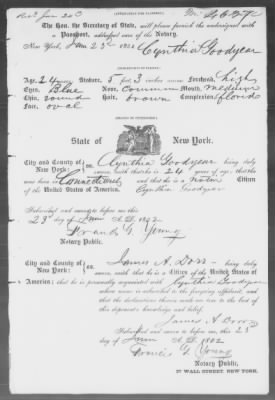 The Hon. the Secretary of State, will please furnish the undersigned with
a Passport, addressed care of the Notary.
New York, June 23d 18
Cynthia Goodyear
Age, 24 years Stature, 5 feet 3 inches Forehead, high
Eyes, Blue Nose, Common Mouth, medium
Chin, round Hair, brown Complexion, florid
Face, oval
State of New York.
City and County of New York: ss. Cynthia Goodyear being duly
sworn, saith that he is 24 years of age; that he
was born in Connecticut and that he is a Native Citizen
of the United States of America. Cynthia Goodyear
Subscribed and sworn to before me this
23d day of June A.D. 18
Francis G. Young
Notary Public.
City and County of New York: ss. James A. Dorr being duly
sworn, saith that he is a Citizen of the United States of
America; that he is personally acquainted with Cynthia Goodyear
whose name is subscribed to the foregoing affidavit, and
that the declarations therein made are true to the best of
this deponent's knowledge and belief.
James A. Dorr
Subscribed and sworn to before me, this 23d
day of June A.D. 18
Francis G. Young
Notary Public,
57 WALL STREET, NEW YORK.